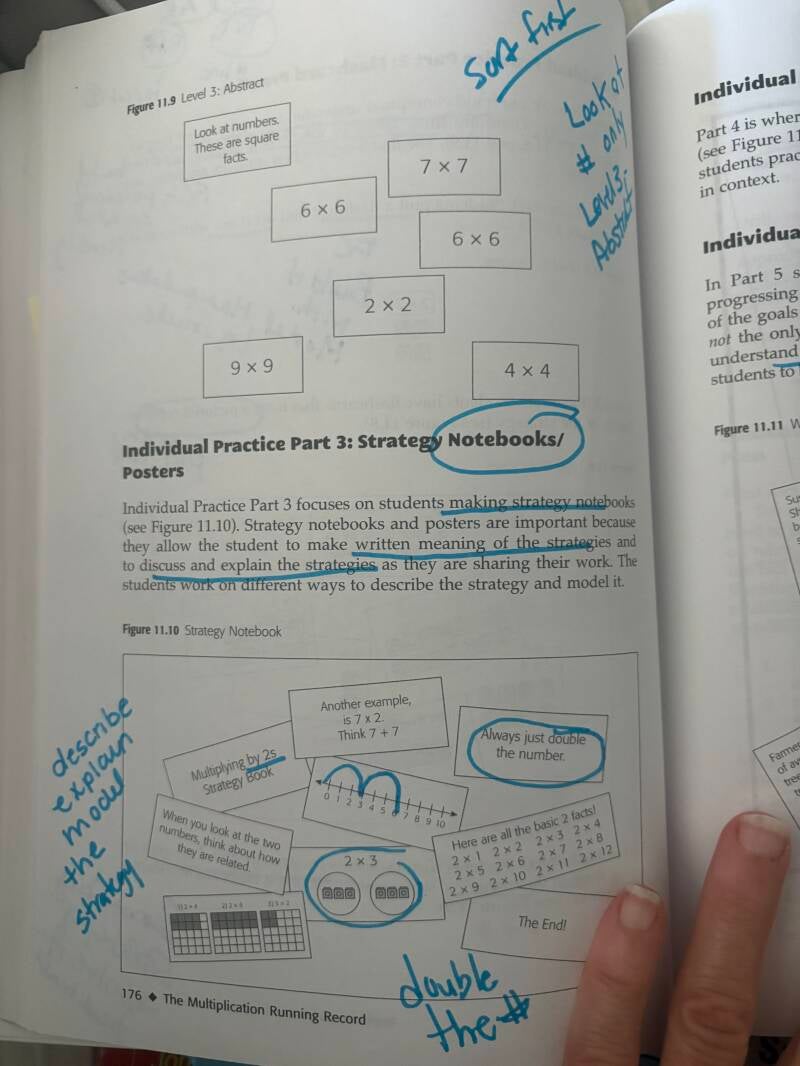 Sort first
Figure 11.9 Level 3: Abstract
Look at numbers.
These are square
facts.
Look at
# only
Level 3-
Abstract
7 × 7
6 × 6
6 × 6
2 × 2
9 × 9
4 × 4
Individual Practice Part 3: Strategy Notebooks/
Posters
Individual Practice Part 3 focuses on students making strategy notebooks
(see Figure 11.10). Strategy notebooks and posters are important because
they allow the student to make written meaning of the strategies and
to discuss and explain the strategies as they are sharing their work. The
students work on different ways to describe the strategy and model it.
Figure 11.10 Strategy Notebook
describe
explain
model
the
strategy
Multiplying by 2s
Strategy Book
Another example,
is 7 x 2.
Think 7 + 7
Always just double
the number.
0 1 2 3 4 5 6 7 8 9 10
When you look at the two
numbers, think about how
they are related.
2 × 3
Here are all the basic 2 facts!
2 × 1 2 × 2 2 × 3 2 × 4
2 × 5 2 × 6 2 × 7 2 × 8
2 × 9 2 × 10 2 × 11 2 × 12
The End!
double
the #
176 ◆ The Multiplication Running Record
Individual
Part 4 is
(see Figure
students
in context.
In Part 5
progressing
of the goals
not the only
understand
students to
Figure 11.11
of